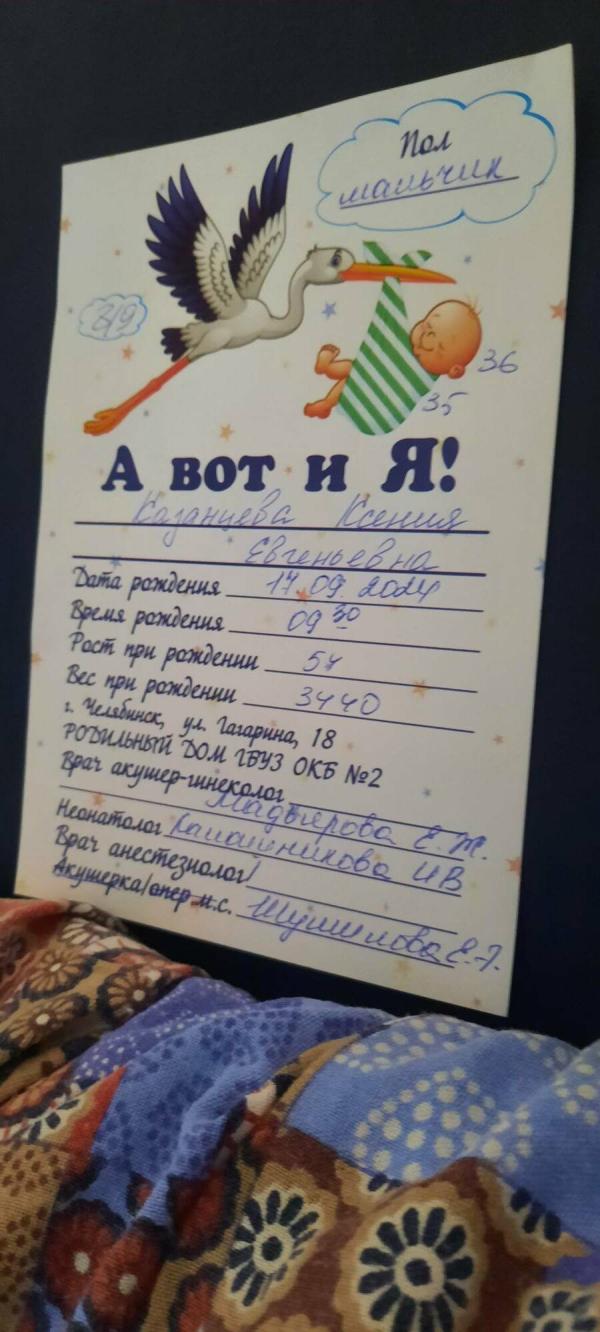 Пол
мальчик
319
36
35
А вот и Я!
Казанцева Ксения
Евгеньевна
Дата рождения 17.09.2024
Время рождения 09 30
Рост при рождении 54
Вес при рождении 3440
г. Челябинск, ул. Гагарина, 18
РОДИЛЬНЫЙ ДОМ ГБУЗ ОКБ №2
Врач акушер-гинеколог
Мадьярова Е. Ж.
Неонатолог Калашникова ИВ
Врач анестезиолог
Акушерка/опер м.с. Шумилова Е.